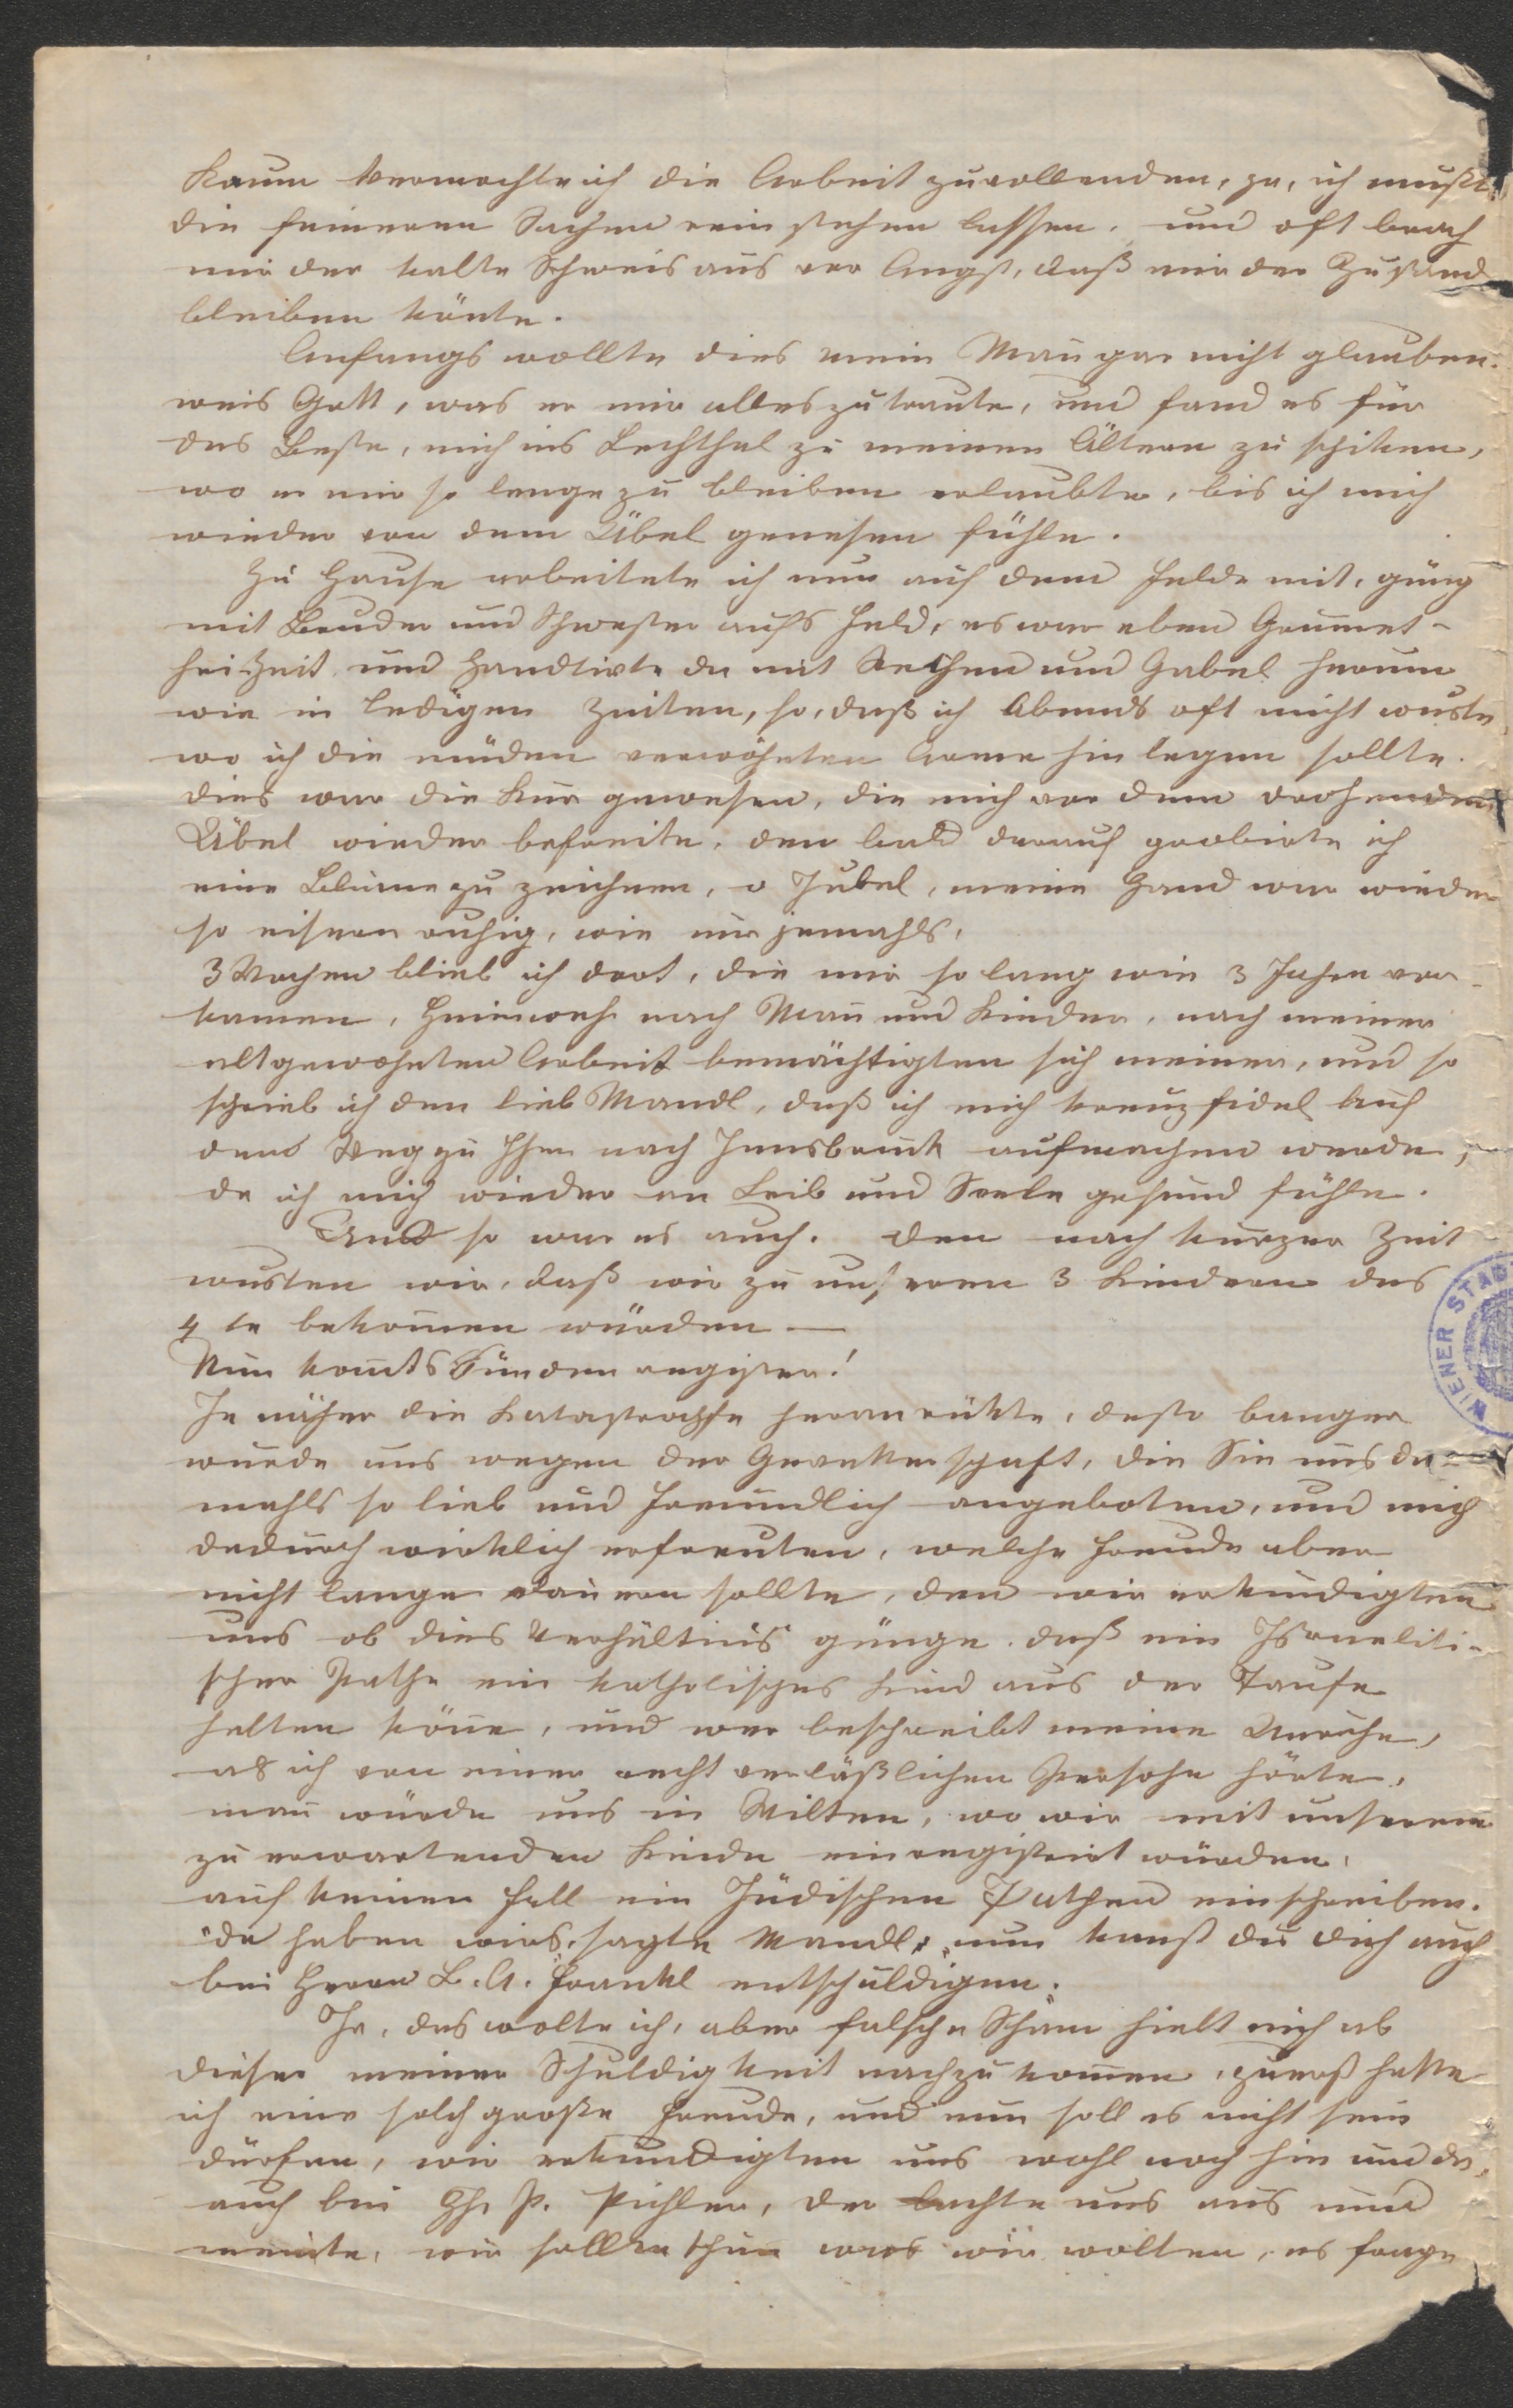 Kaum vermochte ich die Arbeit zuvollenden, ja, ich mußte
die feineren Sachen rein stehen lassen, und oft brach
mir der kalte Schweis aus vor Angst, daß mir der Zustand
bleiben könte.
Anfangs wollte dies mein Mañ gar nicht glauben.
weis Gott, was er mir alles zutraute, und fand es für
das Beste, mich ins Lechthal zu meinen Ältern zu schiken,
wo er mir so lange zu bleiben erlaubte, bis ich mich
wieder von dem Übel genesen fühle.
Zu Hause arbeitete ich nun auf dem Felde mit, güng
mit Bruder und Schwester aufs Feld, es war eben Grum̄et-
heizeit und handtirte da mit Rechen und Gabel herum
wie in ledigen Zeiten, so, daß ich Abends oft nicht wuste,
wo ich die müden verwöhnten Arme hin legen sollte.
dies war die Kur gewesen, die mich vor dem drohenden
Übel wieder befreite, den bald darauf probirte ich
eine Blume zu zeichnen, o Jubel, meine Hand war wieder
so eisern ruhig, wie nur jemahls,
3 Wochen blieb ich dort, die mir so lang wie 3 Jahre vor-
kamen, Heimweh nach Mañ und Kinder, nach meiner
altgewohnten Arbeit bemächtigten sich meiner, und so
schrieb ich den lieb Mandl, daß ich mich kreuzfidel auf
den Weg zu Ihm nach Innsbruck aufmachen werde,
da ich mich wieder an Leib und Seele gesund fühle.
Und so war es auch. den nach kurzer Zeit
wusten wir, daß wir zu unseren 3 Kindern das
4 te bekom̄en würden —
Nun kom̄ts Sünden register!
Je näher die Katastrophe heranrükte, desto banger
wurde uns wegen der Gevatterschaft, die Sie uns da-
mahls so lieb und freundlich angeboten, und mich
dadurch wirklich erfreuten, welche Freude aber
nicht lange dauern sollte, den wir erkundigten
uns ob dies Verhältnis günge, daß ein Israeliti-
scher Pathe ein katholisches Kind aus der Taufe
halten köñe, und wer beschreibt meine Unruhe,
als ich von einer recht verläßlichen Persohn hörte,
mañ würde uns in Wilten, wo wir mit unserem
zu erwartenden Kinde einregistrirt würden,
auf keinen Fall ein Jüdischen Pathen einschreiben.
"da haben wirs, sagte Mandl, nun kanst du dich auch
bei Herrn L. A. Frankl entschuldigen."
Ja, das wolte ich, aber falsche Scham hielt mich ab
dieser meiner Schuldigkeit nachzu kom̄en, zuerst hatte
ich eine solch große Freude, und nun soll es nicht sein
dürfen, wir erkundigten uns wohl noch hin und da,
auch bei P. Pichler, der lachte uns aus und
meinte, wir sollen thun was wir wolten, es frage
WIENER STAD